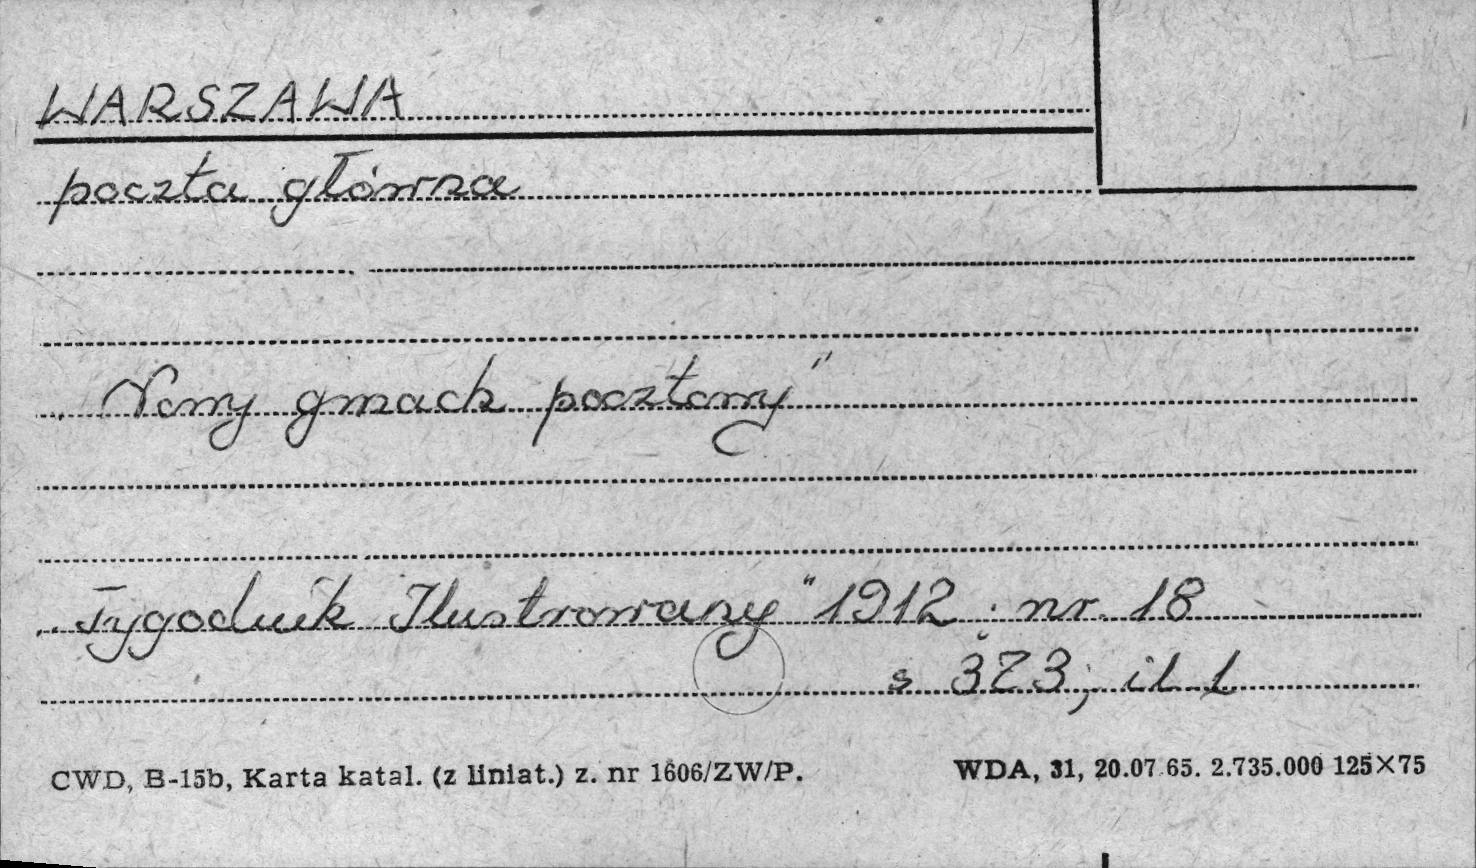 WARSZAWA
poczta główna
„Nowy gmach pocztowy"
„Tygodnik Ilustrowany" 1912. nr. 18
s 373; il 1
CWD, B-15b, Karta katal. (z liniat.) z. nr 1606/ZW/P.
WDA, 31, 20.07.65. 2.735.000 125×75